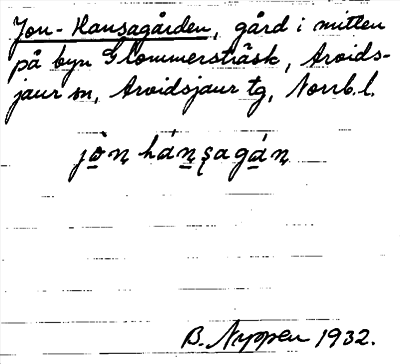 Jon-Hansagården, gård i mitten
på byn Glommersträsk, Arvids-
jaur sn, Arvidsjaur tg, Norrb.l.
jòn hánsagán
B. Nyppen 1932.